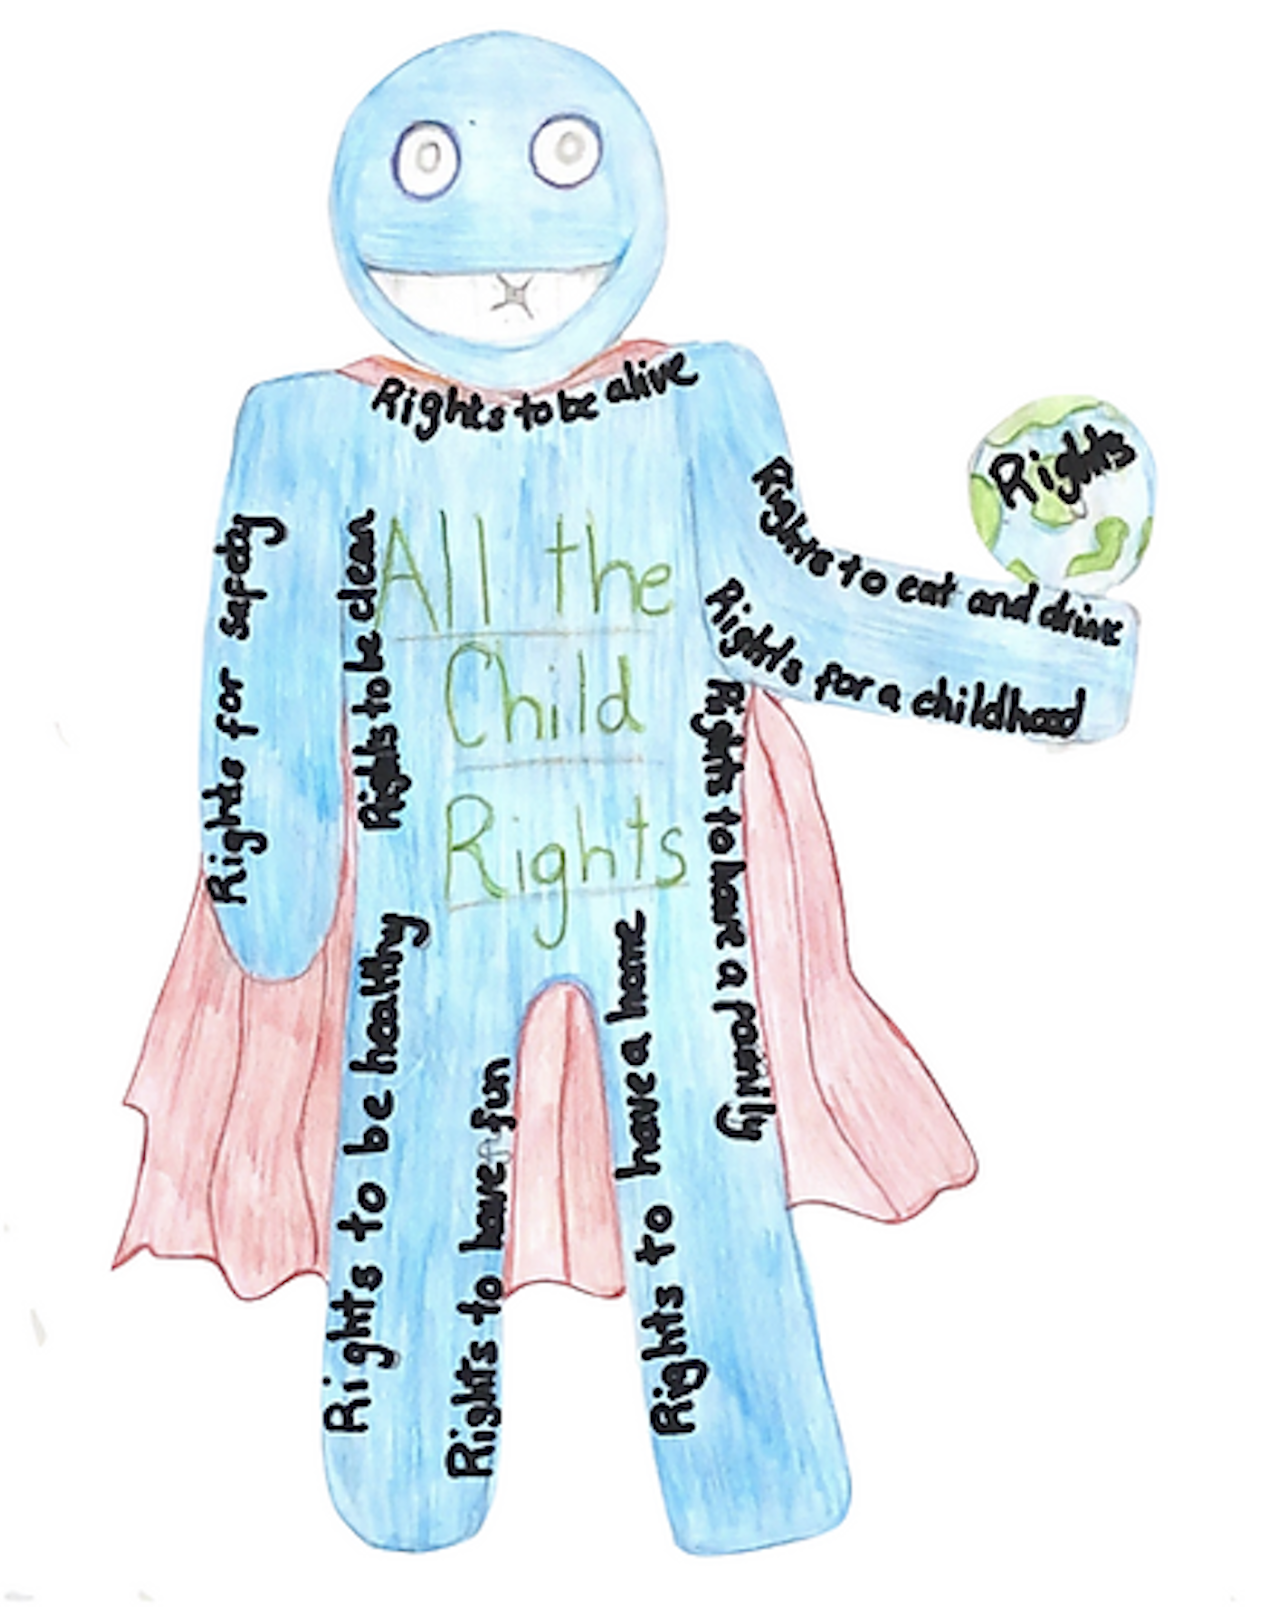 Rights to be alive
Rights
Rights to eat and drink
Rights for a childhood
Rights for safety
Rights to be clean
All the
Child
Rights
Rights to have a family
Rights to be healthy
Rights to have fun
Rights to have a home